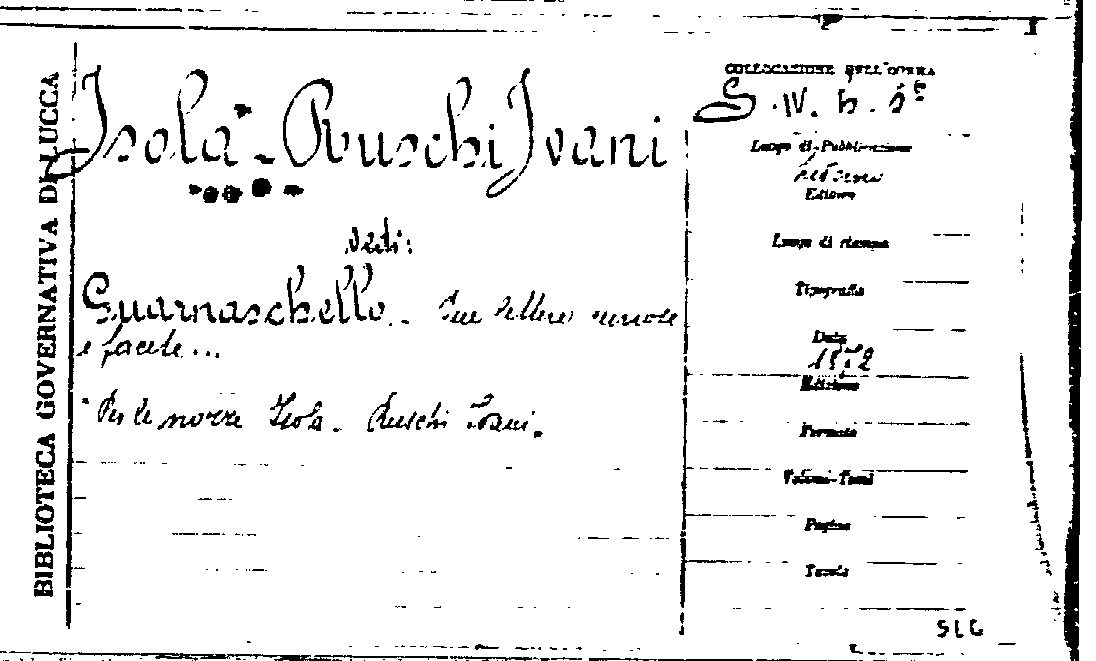 BIBLIOTECA GOVERNATIVA DI LUCCA
Isola - Ruschi Ivani
Vedi:
Guarnaschello. Due lettere
e facete...
Per le nozze Isola - Ruschi Ivani.
COLLOCAZIONE DELL'OPERA
Luogo di Pubblicazione
Editore
Luogo di stampa
Tipografia
Data
Edizione
Formato
Volumi-Tomi
Pagine
Tavole